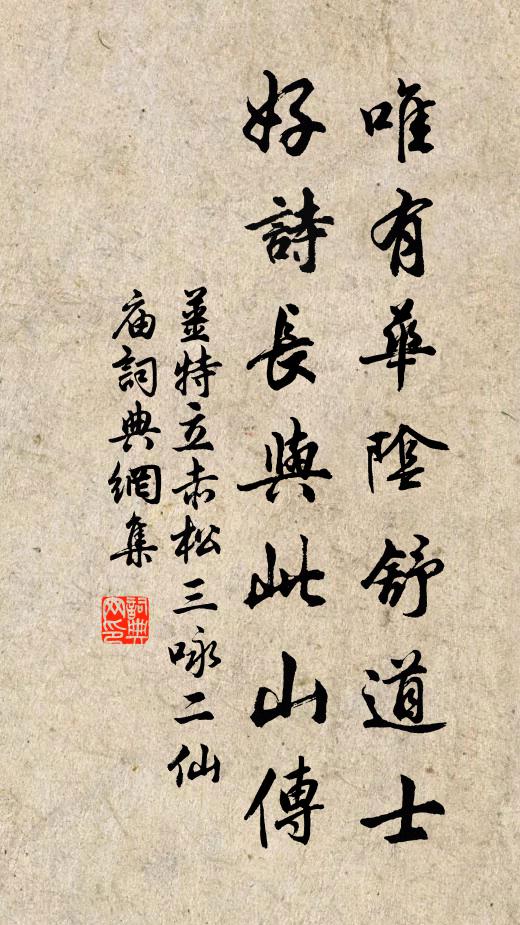 唯有華陰舒道士
好詩長與此山傳
姜特立赤松三咏二仙
庙詞典網集
詞典網印